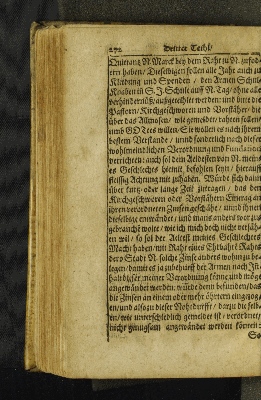 272 Dritter Theil/
Quietanz N. Marck bey dem Raht zu N. zufod-
ern haben/ Dieselbigen sollen alle Jahr auch zu
Kleidung und Spenden / den Armen Schul-
Knaben in S. J. Schule auff N. Tag/ ohne alle
verhindernüß/ außgetheilet werden: und bitte die
Pastorn/ Kirchgeschworen und Vorstäher/ die
über das Allmosen/ wie gemeldet/ rahten sollen/
umb GOTtes willen/ Sie wollen es nach ihrem
bestem Verstande / unnd sonderlich nach dieser
wohlmeindlichen Verordnung und Fundation
verrichten: auch sol dem Aeltesten von N. meines
es Geschlechts hiemit befohlen seyn/ hierauff
fleissig Achtung mit zuhaben. Würde sich dann
über kurtz oder lange Zeit zutragen/ das den
Kirchgeschworen oder Vorstähern Eintrag an
ihren verordneten Zinsen geschähe/ unnd ihnen
dieselbige entwändet/ und zu was anders
gebraucht wolte/ wie ich mich doch nicht versähe
en wil/ so sol der Aeltest meines Geschlechtes
Macht haben/ mit Raht eines E. Hoch: Rahts
dero Stadt N. solche Zinse anders wohin zu be-
legen/ damit es ja zu behueff der Armen nach In-
halt dieser meiner Verordnung könne und möge
angewändet werden: würde denn befunden/ das
die Zinsen an einem oder mehr öhrtern eingezog-
en/ und also zu dieser Nohtdurfft/
en/ wie unterschiedlich gemeldet ist/ verordnet/
nicht genugsam angewändet werden können:
So